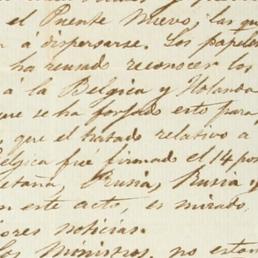 el Puente Nuevo, las qu
á dispersarse. Los papeles
ha reusado reconocer los
á la Belgica y Holanda
que se ha forjado esto para
que el tratado relativo a
Belgica fue firmado el 14 por
etaña, Rusia, Rusia y
en este acto, es mirado,
ores noticias.
Los Ministros, no estan